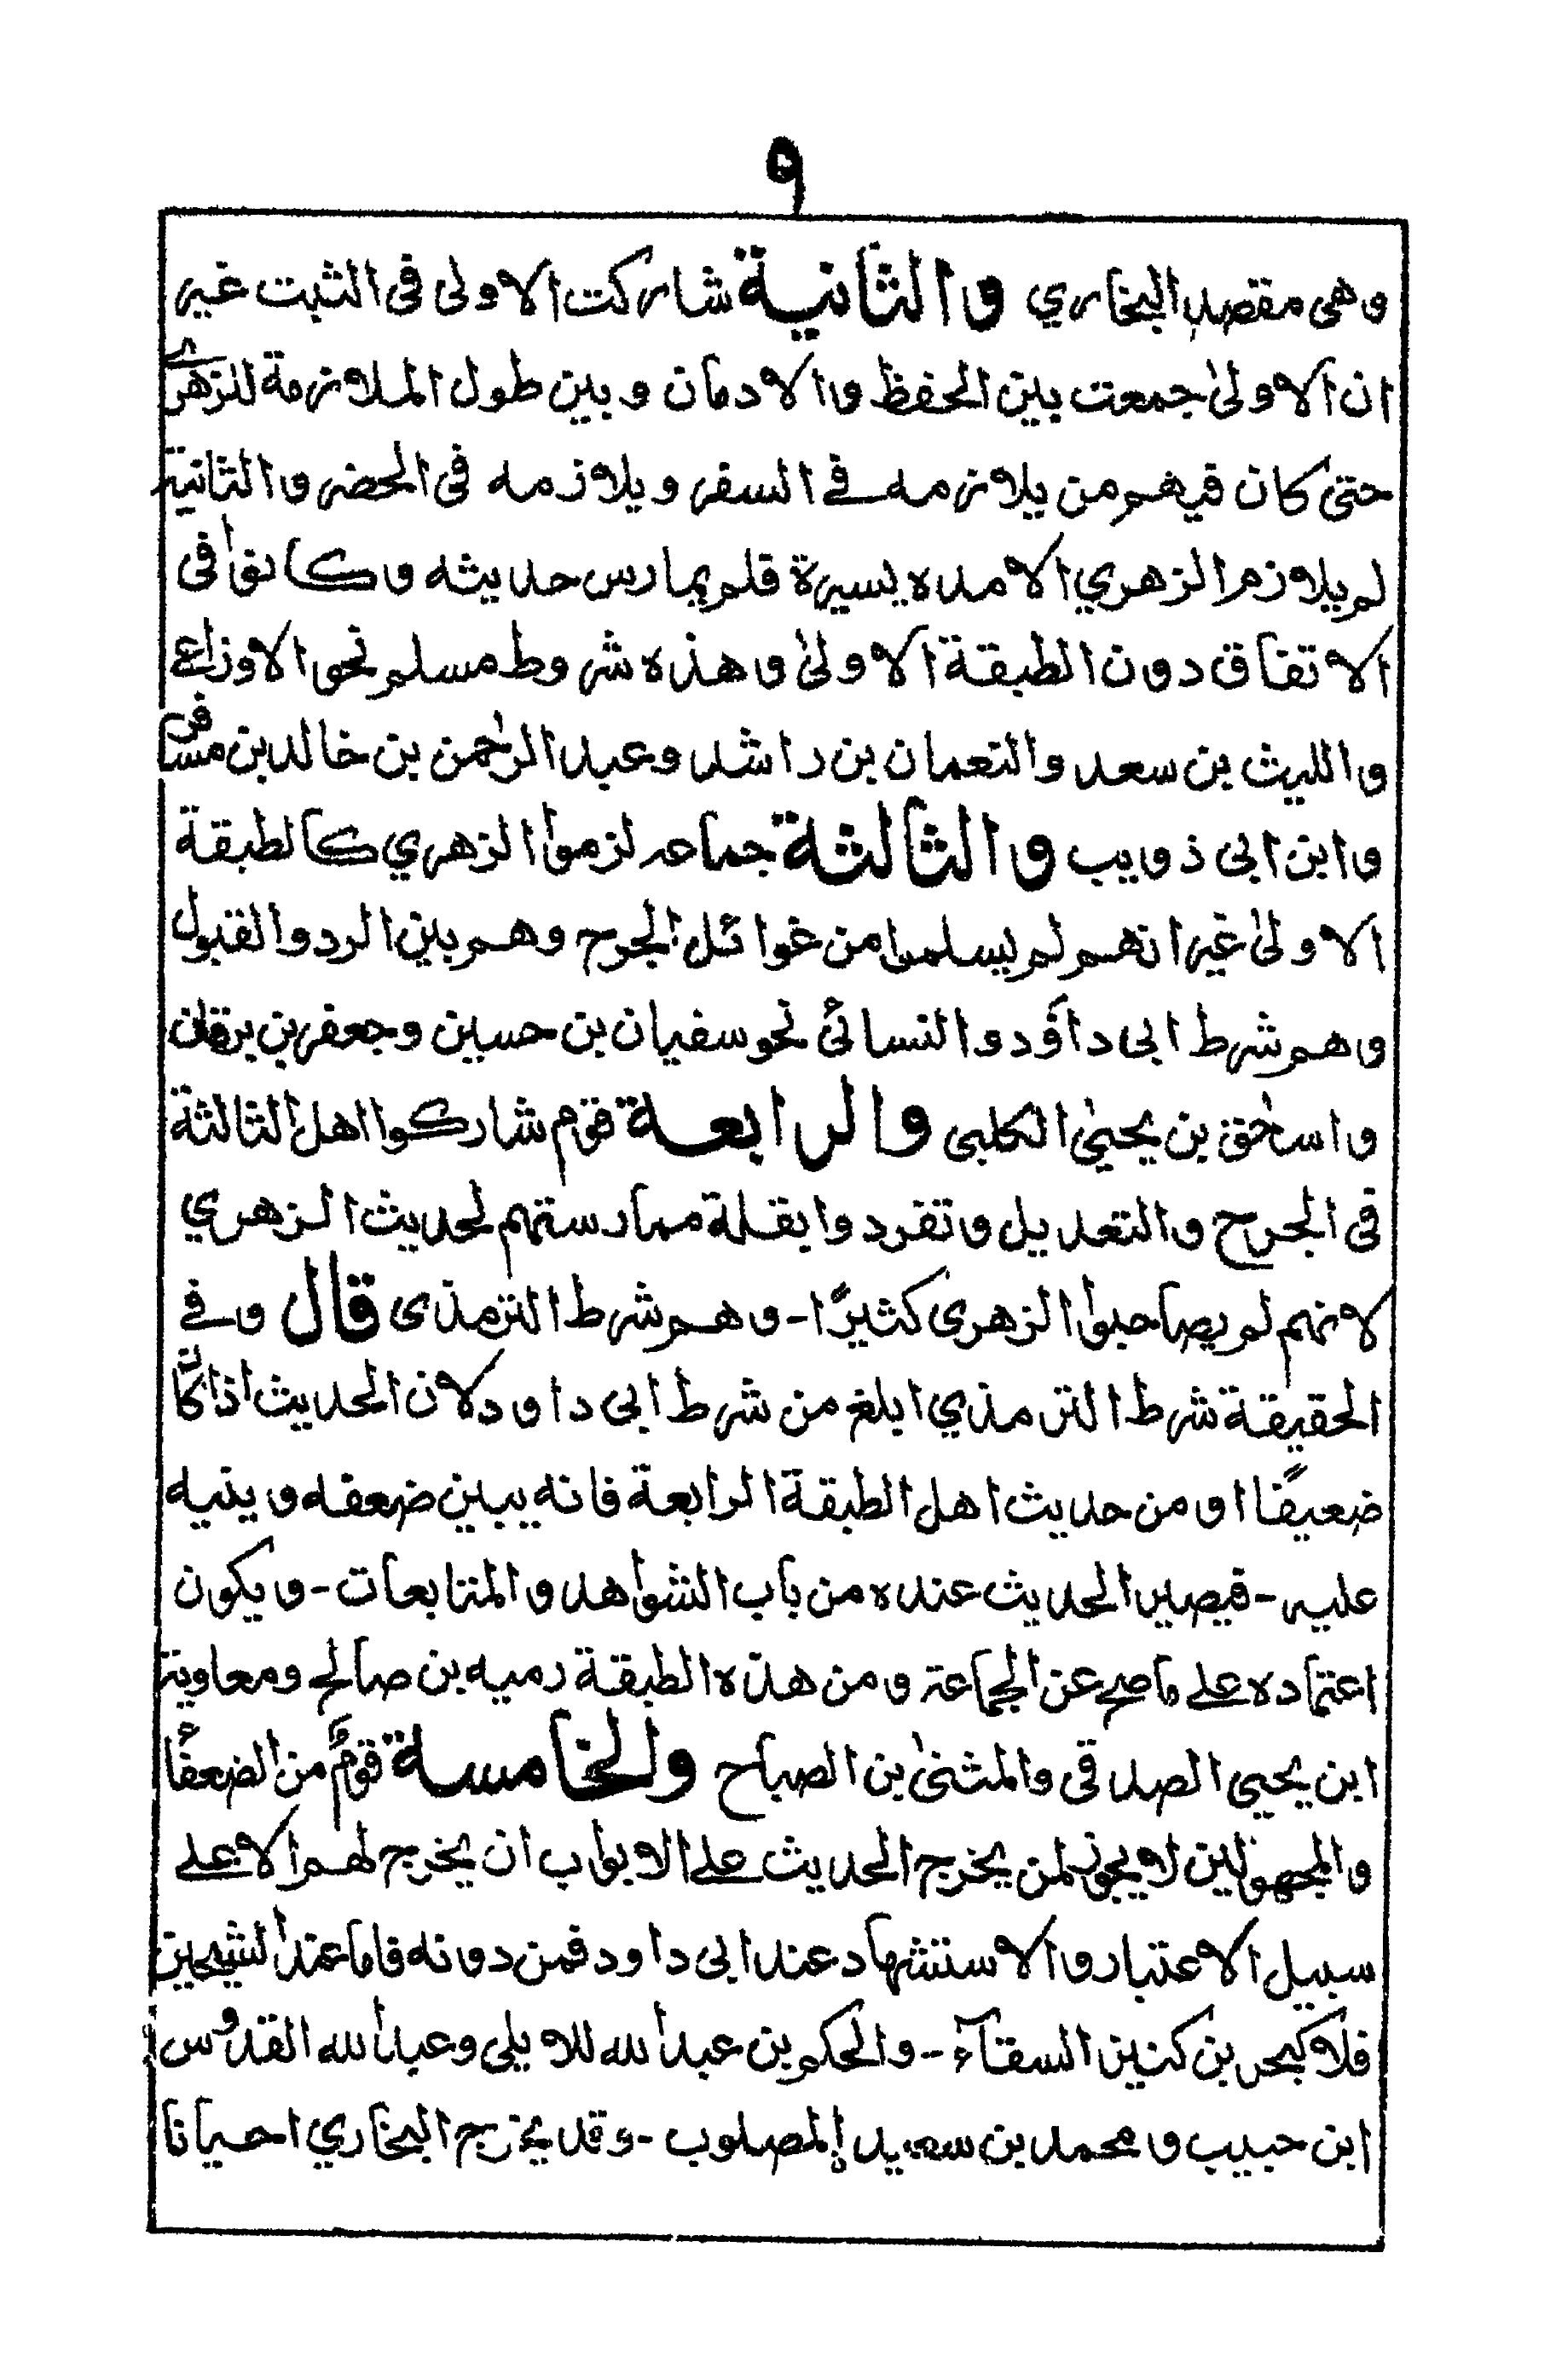 ٩
وهى مقصد البخاري والثانية شاركت الاولى فى الثبت غير
ان الاولىٰ جمعت بين الحفظ والادمان وبين طول الملازمة للزهرے
حتىٰ كان فيهم من يلازمه فے السفر ويلازمه فى الحضر والثانية
لم يلازم الزهري الا مده يسيرة فلم يمارس حديثه وكانوا فى
الاتفاق دون الطبقة الاولىٰ وهذه شروط مسلم نحو الاوزاعے
والليث بن سعد والنعمان بن راشد وعبد الرحمٰن بن خالد بن مسافر
وابن ابى ذويب والثالثة جماعه لزموا الزهري كالطبقة
الاولىٰ غير انهم لم يسلموا من غوائل الجرح وهم بين الرد والقبول
وهم شرط ابى داؤد والنسائى نحو سفيان بن حسين وجعفر بن برقان
واسحٰق بن يحيىٰ الكلبى والرابعة قوم شاركوا اهل الثالثة
فى الجرح والتعديل وتفردوا بقلة ممارستهم لحديث الزهري
لانهم لم يصاحبوا الزهرى كثيرًا - وهم شرط الترمذى قال وفے
الحقيقة شرط الترمذي ابلغ من شرط ابى داود لان الحديث اذا كان
ضعيفًا او من حديث اهل الطبقة الرابعة فانه يبين ضعفه وينبه
عليه - فيصير الحديث عنده من باب الشواهد والمتابعات - ويكون
اعتماده علے ما صح عن الجماعة ومن هذه الطبقة زميه بن صالح ومعاوية
ابن يحيى الصدقى والمثنىٰ بن الصباح والخامسة قومٌ من الضعفاء
والمجهولين لا يجوز لمن يخرج الحديث علے الابواب ان يخرج لهم الا علے
سبيل الاعتبار والاستشهاد عند ابى داود فمن دونه فاما عند الشيخين
فلا كبحر بن كنيز السقآء - والحكم بن عبد الله للايلى وعبد الله القدوس
ابن حبيب ومحمد بن سعيد المصلوب - وقد يخرج البخاري احيانا